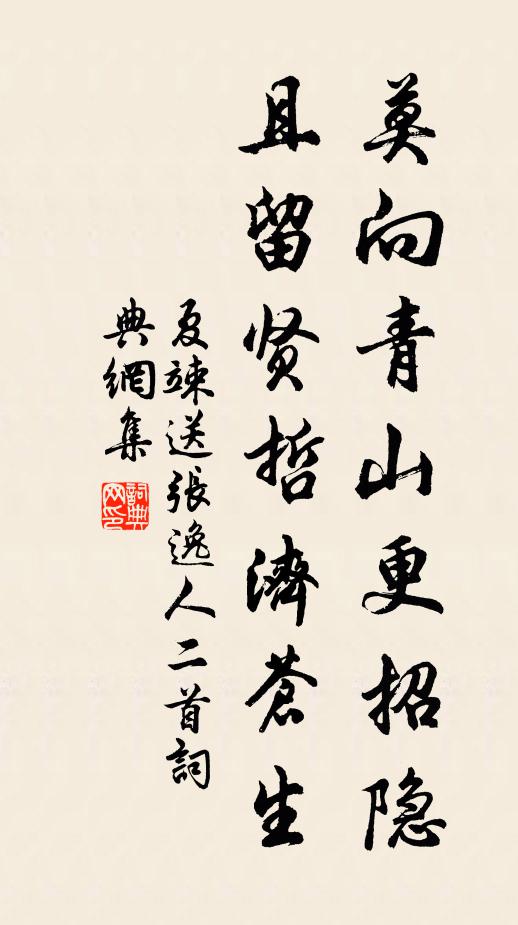 莫向青山更招隐
且留贤哲濟蒼生
夏竦送張逸人二首詞
典網集
詞典网印